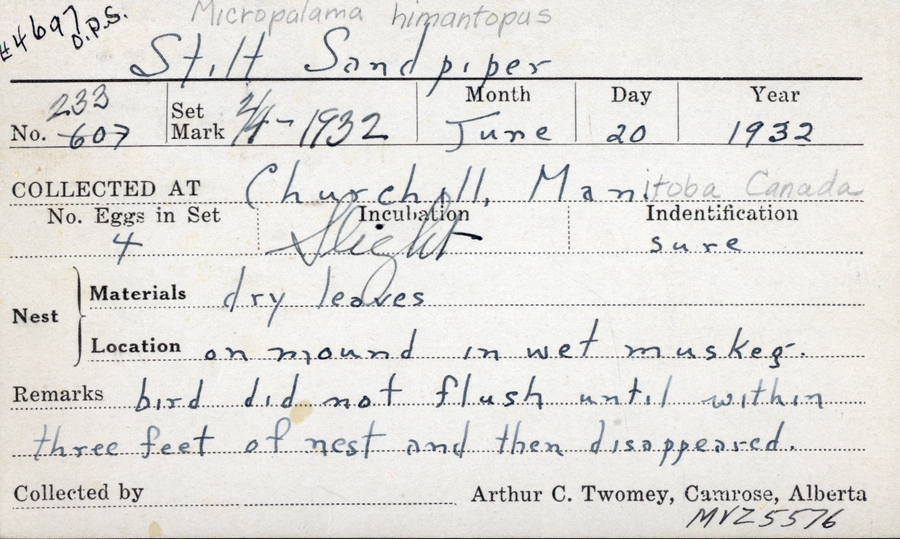 Micropalama himantopus
#4697 O.P.S.
Stilt Sandpiper
No. 607 233 Set Mark 4/4-1932 Month June Day 20 Year 1932
COLLECTED AT Churchill, Manitoba Canada
No. Eggs in Set 4 Incubation Slight Indentification sure
Nest
Materials dry leaves
Location on mound in wet muskeg.
Remarks bird did not flush until within
three feet of nest and then disappeared.
Collected by Arthur C. Twomey, Camrose, Alberta
MVZ 5576